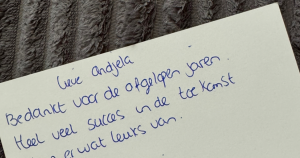 Lieve andjela
Bedankt voor de afgelopen jaren.
Heel veel succes in de toekomst
er wat leuks van.